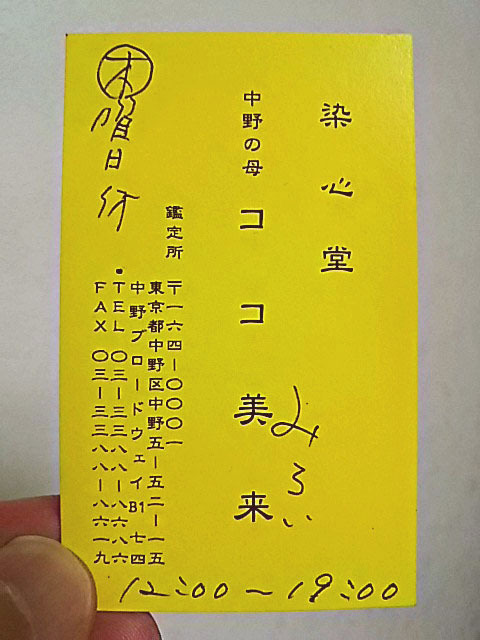 染心堂
中野の母 ココ美来
みらい
鑑定所
〒一六四-〇〇〇一
東京都中野区中野五-五二-一五
中野ブロードウェイB1七四
・TEL 〇三-三三八八-八六八六
FAX 〇三-三三八八-八六一九
木曜日休
12:00～19:00